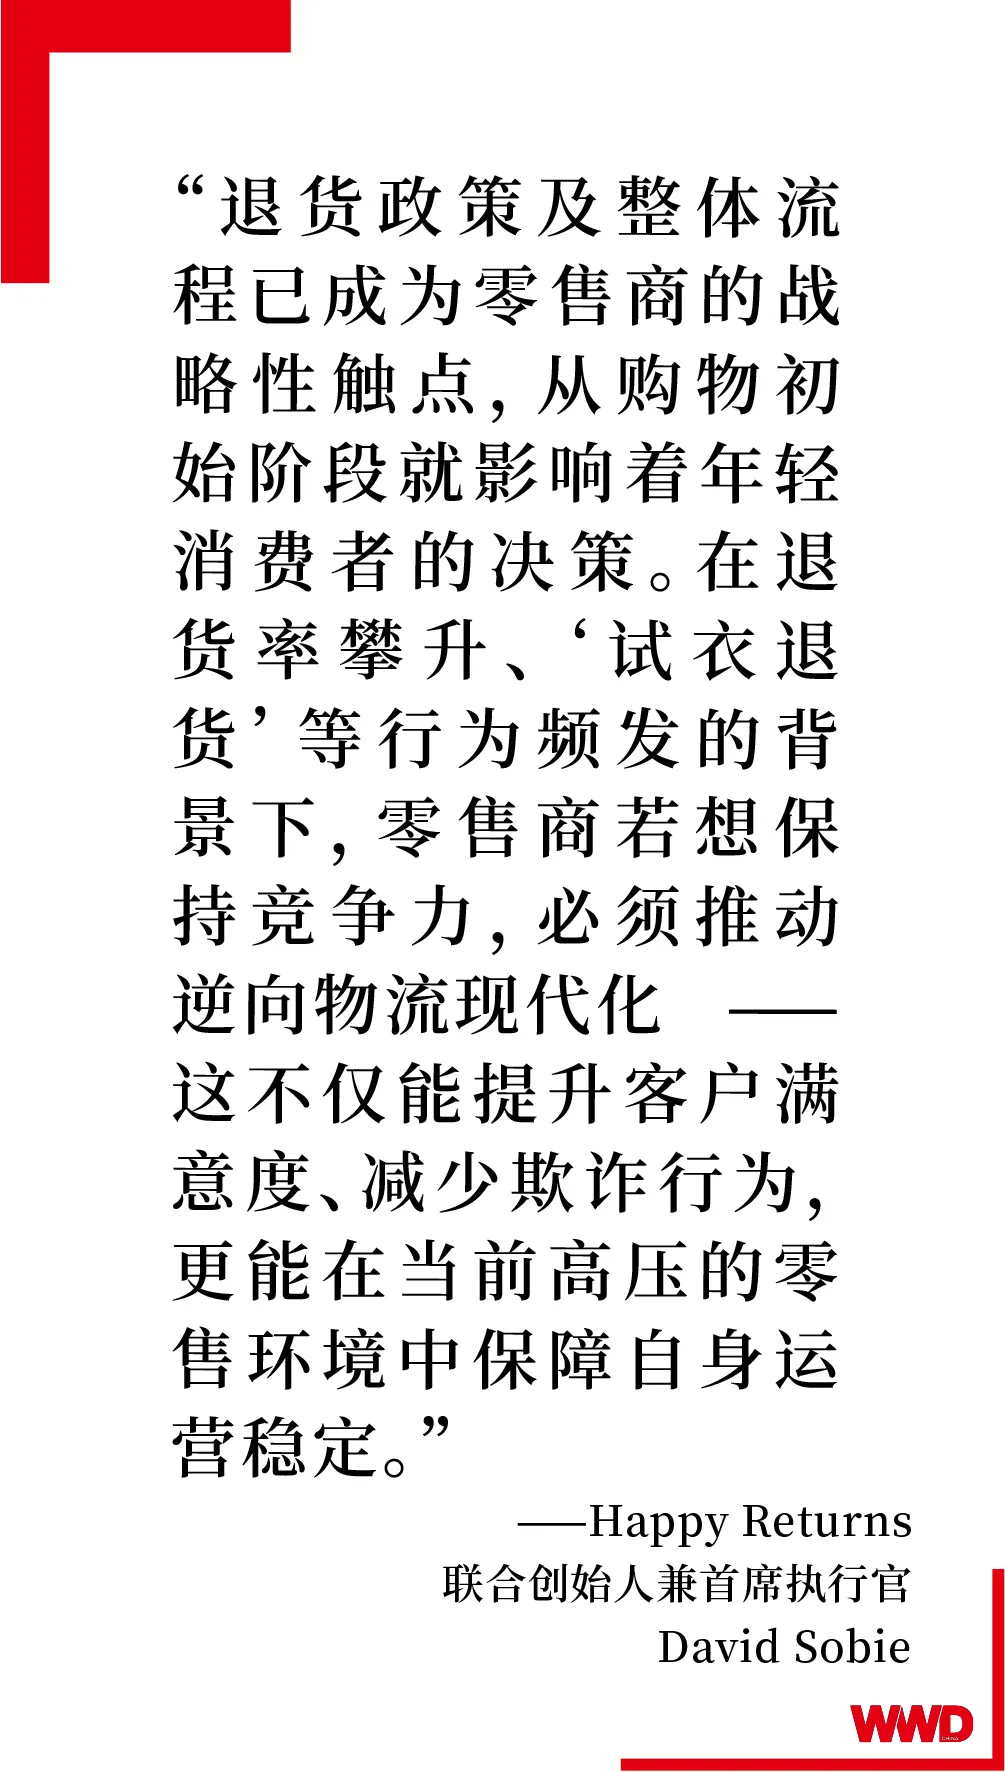 “退货政策及整体流
程已成为零售商的战
略性触点，从购物初
始阶段就影响着年轻
消费者的决策。在退
货率攀升、‘试衣退
货’等行为频发的背
景下，零售商若想保
持竞争力，必须推动
逆向物流现代化 ——
这不仅能提升客户满
意度、减少欺诈行为，
更能在当前高压的零
售环境中保障自身运
营稳定。”
——Happy Returns
联合创始人兼首席执行官
David Sobie
WWD
CHINA